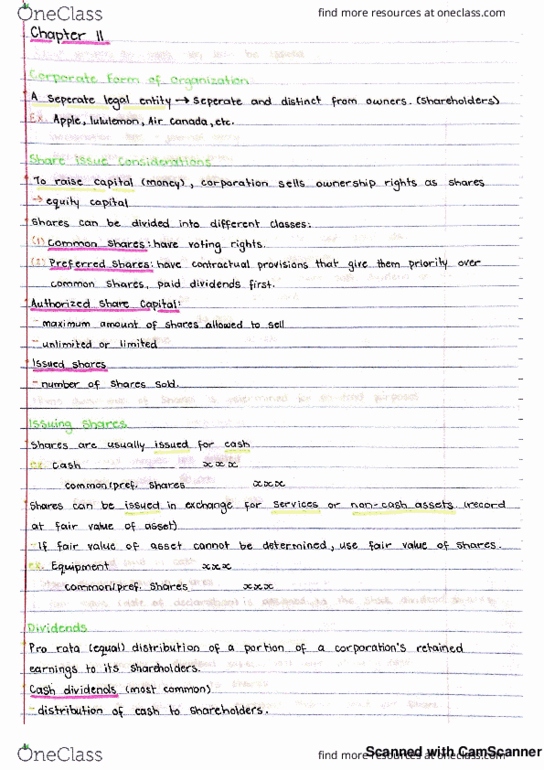 OneClass
find more resources at oneclass.com
Chapter 11
Corporate Form of Organization
A seperate legal entity → seperate and distinct from owners. (shareholders)
Ex. Apple, lululemon, Air Canada, etc.
Share Issue Considerations
To raise capital (money), corporation sells ownership rights as shares
→ equity capital
shares can be divided into different classes:
(1) Common shares: have voting rights.
(2) Preferred shares: have contractual provisions that give them priority over
common shares, paid dividends first.
Authorized Share Capital:
- maximum amount of shares allowed to sell
- unlimited or limited
Issued shares
- number of shares sold.
Issuing Shares
Shares are usually issued for cash
ex. Cash xxx
common/pref. shares xxx
Shares can be issued in exchange for services or non-cash assets (record
at fair value of asset)
- If fair value of asset cannot be determined, use fair value of shares.
ex. Equipment xxx
common/pref. shares xxx
Dividends
Pro rata (equal) distribution of a portion of a corporation's retained
earnings to its shareholders.
Cash dividends (most common)
- distribution of cash to shareholders.
OneClass
find more resources at oneclass.com
Scanned with CamScanner